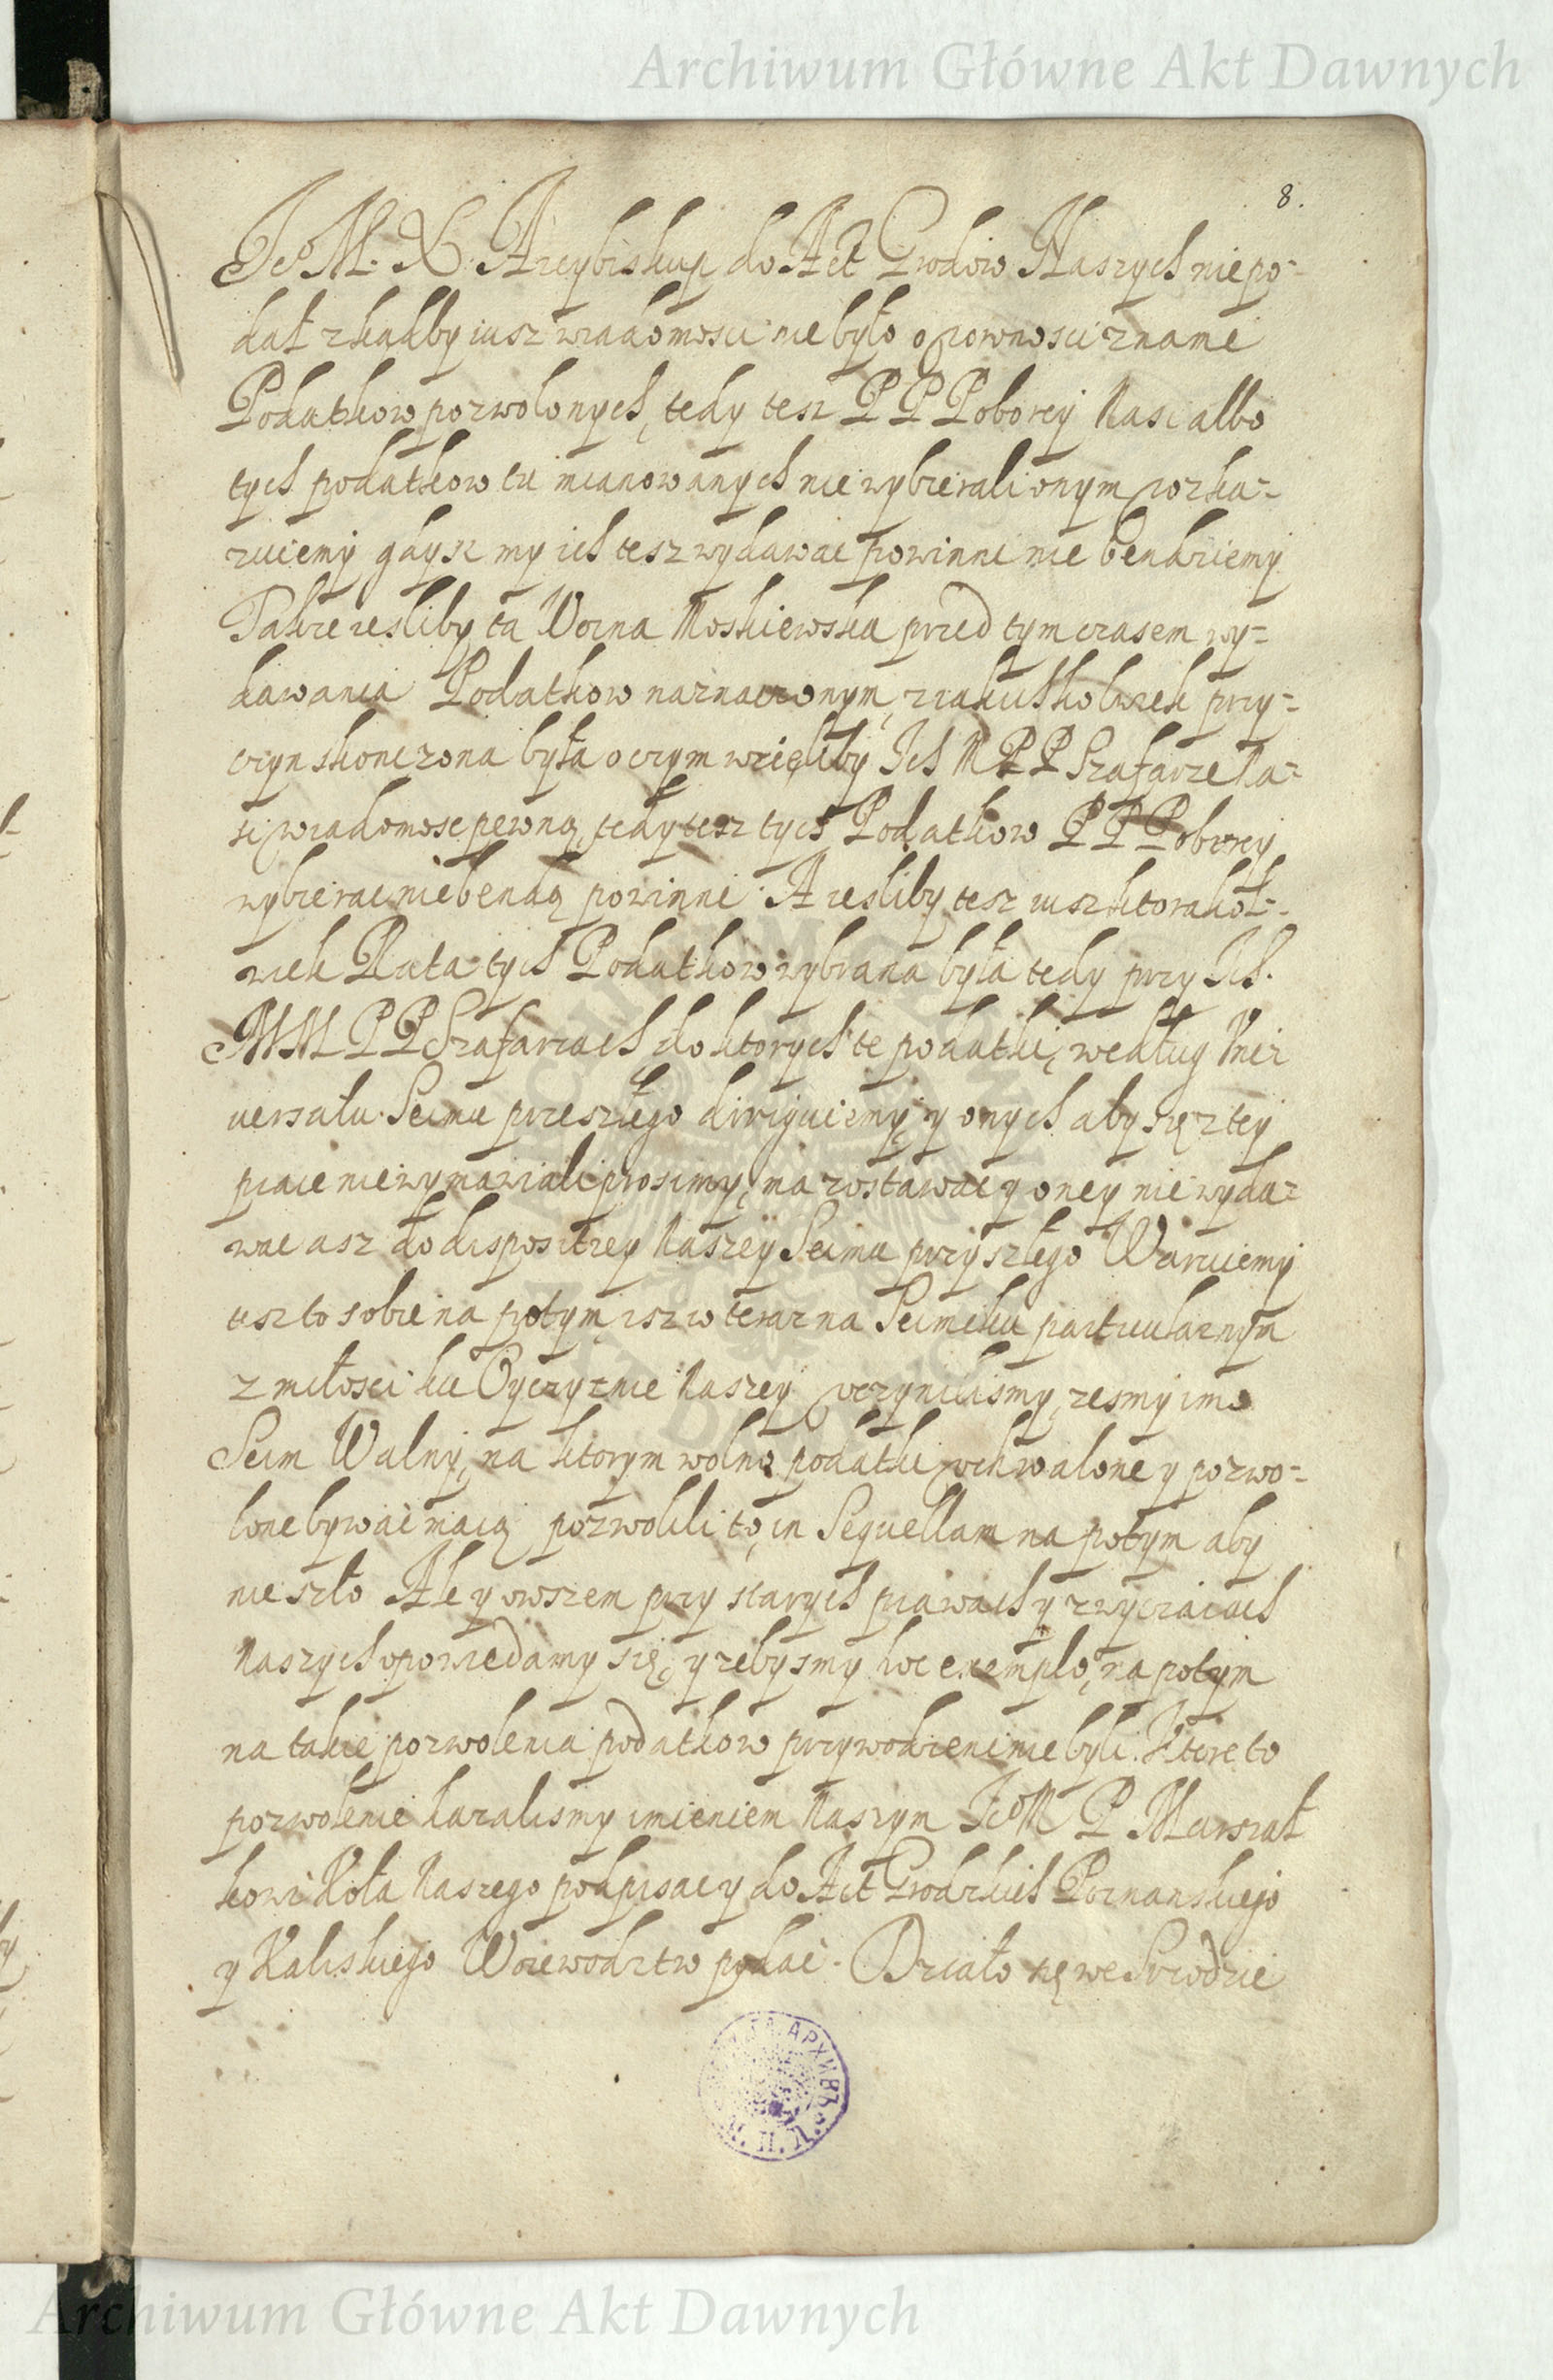 Archiwum Główne Akt Dawnych
8.
Je M. X. Arcybiskup do Act Grodow Naszych niepo-
dał zkadby iusz wiadomosci nie było o rownosci z nami
Podatkow pozwolonych, tedy tesz PP Poborcy Nasi albo
tych podatkow tu mianowanych nie wybierali onym rozka-
zuiemy gdysz my ich tesz wydawac powinni nie bendziemy
Takze iesliby ta Woina Moskiewska przed tym czasem wy-
dawania Podatkow naznaczonym, z iakichkolwiek przy-
czyn skonczona była o czym wzięliby Ich M PP Szafarze Na-
si wiadomosc pewną, tedy tesz tych Podatkow PP Poborcy
wybierac niebendą powinni. A iesliby tesz iusz ktorakol-
wiek Rata tych Podatkow wybrana była tedy przy Ich.
MM PP Szafarzach do ktorych te podatki, według Uni
uersału Seimu przeszłego dirigiuiemy, y onych aby się z tey
prace nie wymawiali prosimy, ma zostawac y oney nie wyda-
wac asz do dispositiey Naszey Seimu przyszłego Waruiemy
tesz to sobie na potym, isz co teraz na Seimiku particularnym
z miłosci ku Oyczyznie Naszey uczynilismy, zesmy imo
Seim Walny, na ktorym wolno podatki uchwalone y pozwo-
lone bywac maią pozwolili to, in Sequellam na potym aby
nie szło Ale y owszem przy starych prawach y zwyczaiach
Naszych opowiedamy się, y zebysmy hoc exemplo, na potym
na takie pozwolenia podatkow przywodzeni nie byli. Ktore to
pozwolenie kazalismy imieniem Naszym Je M P Marszał
kowi Koła Naszego podpisac y do Act Grodzkich Poznanskiego
y Kaliskiego Woiewodztw podac. Działo się we Srzodzie
АРХИВЪ
Archiwum Główne Akt Dawnych